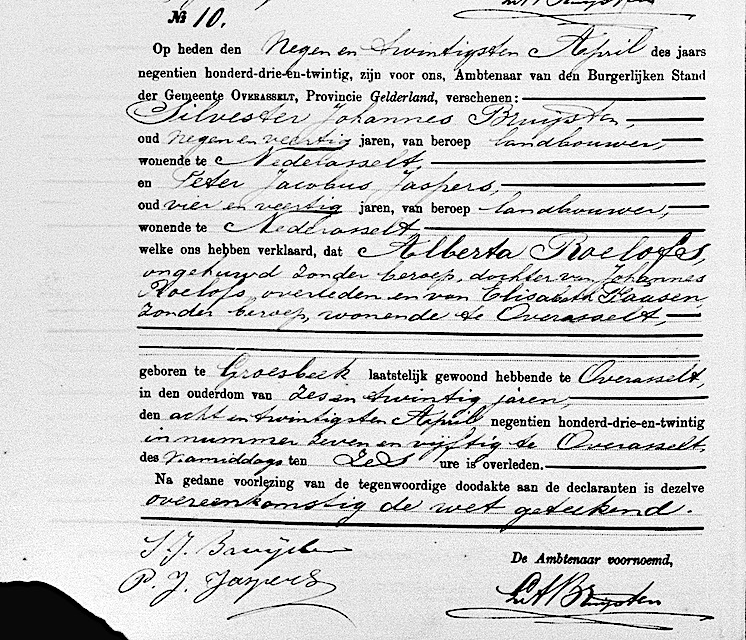 № 10.
Op heden den Negen en twintigsten April des jaars
negentien honderd-drie-en-twintig, zijn voor ons, Ambtenaar van den Burgerlijken Stand
der Gemeente OVERASSELT, Provincie Gelderland, verschenen:
Silvester Johannes Bruijsten,
oud negen en veertig jaren, van beroep landbouwer,
wonende te Nederasselt,
en Peter Jacobus Jaspers,
oud vier en veertig jaren, van beroep landbouwer,
wonende te Nederasselt
welke ons hebben verklaard, dat Alberta Roelofs,
ongehuwd zonder beroep, dochter van Johannes
Roelofs, overleden en van Elisabeth Klaasen,
zonder beroep, wonende te Overasselt,
geboren te Groesbeek laatstelijk gewoond hebbende te Overasselt,
in den ouderdom van zes en twintig jaren,
den acht en twintigsten April negentien honderd-drie-en-twintig
in nummer zeven en vijftig te Overasselt,
des namiddags ten zes ure is overleden.
Na gedane voorlezing van de tegenwoordige doodakte aan de declaranten is dezelve
overeenkomstig de wet geteekend.
S. J. Bruijsten
De Ambtenaar voornoemd,
P. J. Jaspers
Bruijsten